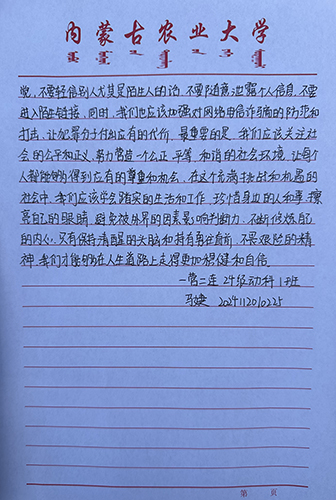 内蒙古农业大学
觉，不要轻信别人尤其是陌生人的话，不要随意泄露个人信息，不要
进入陌生链接，同时，我们也应该加强对网络电信诈骗的防范和
打击，让犯罪分子付出应有的代价。最重要的是，我们应该关注社
会的公平和正义，努力营造一个公正、平等、和谐的社会环境，让每个
人都能够得到应有的尊重和机会。在这个充满挑战和机遇的
社会中，我们应该学会踏实的生活和工作，珍惜身边的人和事，擦
亮自己的眼睛，避免被外界的因素影响判断力，不断修炼自己
的内心，只有保持清醒的头脑和持有勇往直前、不畏艰险的精
神，我们才能够在人生道路上走得更加稳健和自信。
一营二连 24级动科1班
马婕 2024112010225
第 页